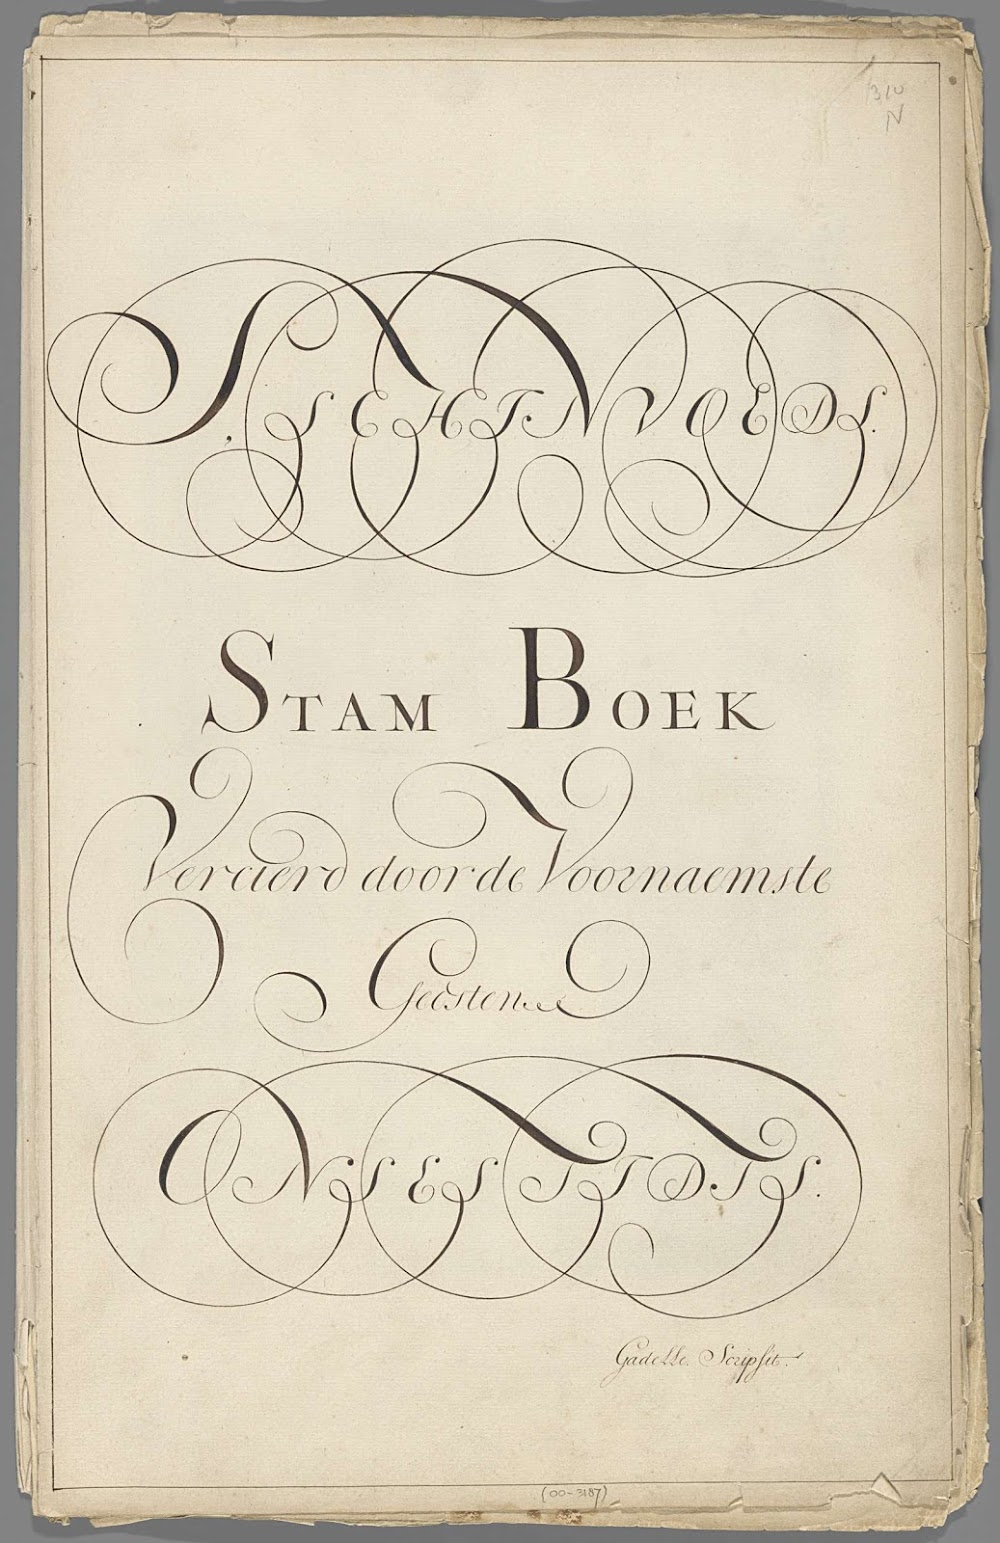 S, SCHINVOEDS.
STAM BOEK
Vercierd door de Voornaemste
Geesten
ONSES TIDTS.
Gadelle. Scripsit.
(00-3187)